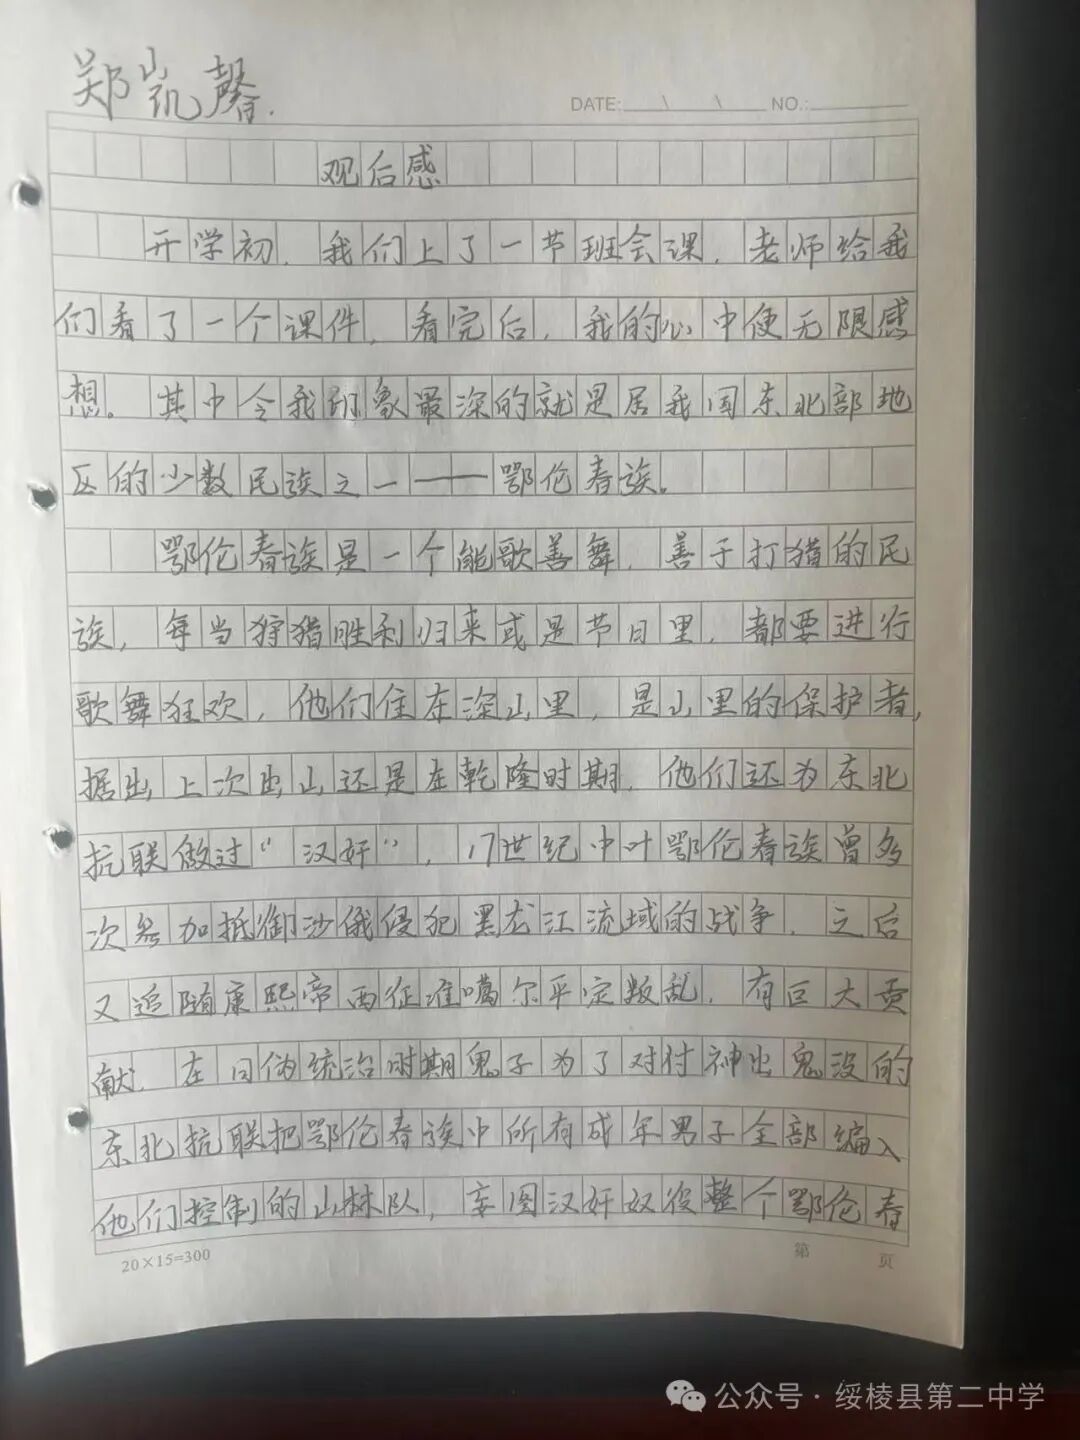 郑岚馨.
DATE: \ \ NO.:
观后感
开学初，我们上了一节班会课，老师给我
们看了一个课件，看完后，我的心中便无限感
想。其中令我印象最深的就是居我国东北部地
区的少数民族之一——鄂伦春族。
鄂伦春族是一个能歌善舞，善于打猎的民
族，每当狩猎胜利归来或是节日里，都要进行
歌舞狂欢，他们住在深山里，是山里的保护者，
据出上次出山还是在乾隆时期，他们还为东北
抗联做过“汉奸”，17世纪中叶鄂伦春族曾多
次参加抵御沙俄侵犯黑龙江流域的战争，之后
又追随康熙帝西征准噶尔平定叛乱，有巨大贡
献，在日伪统治时期鬼子为了对付神出鬼没的
东北抗联把鄂伦春族中所有成年男子全部编入
他们控制的山林队，妄图汉奸奴役整个鄂伦春
20×15=300 第 页
公众号·绥棱县第二中学